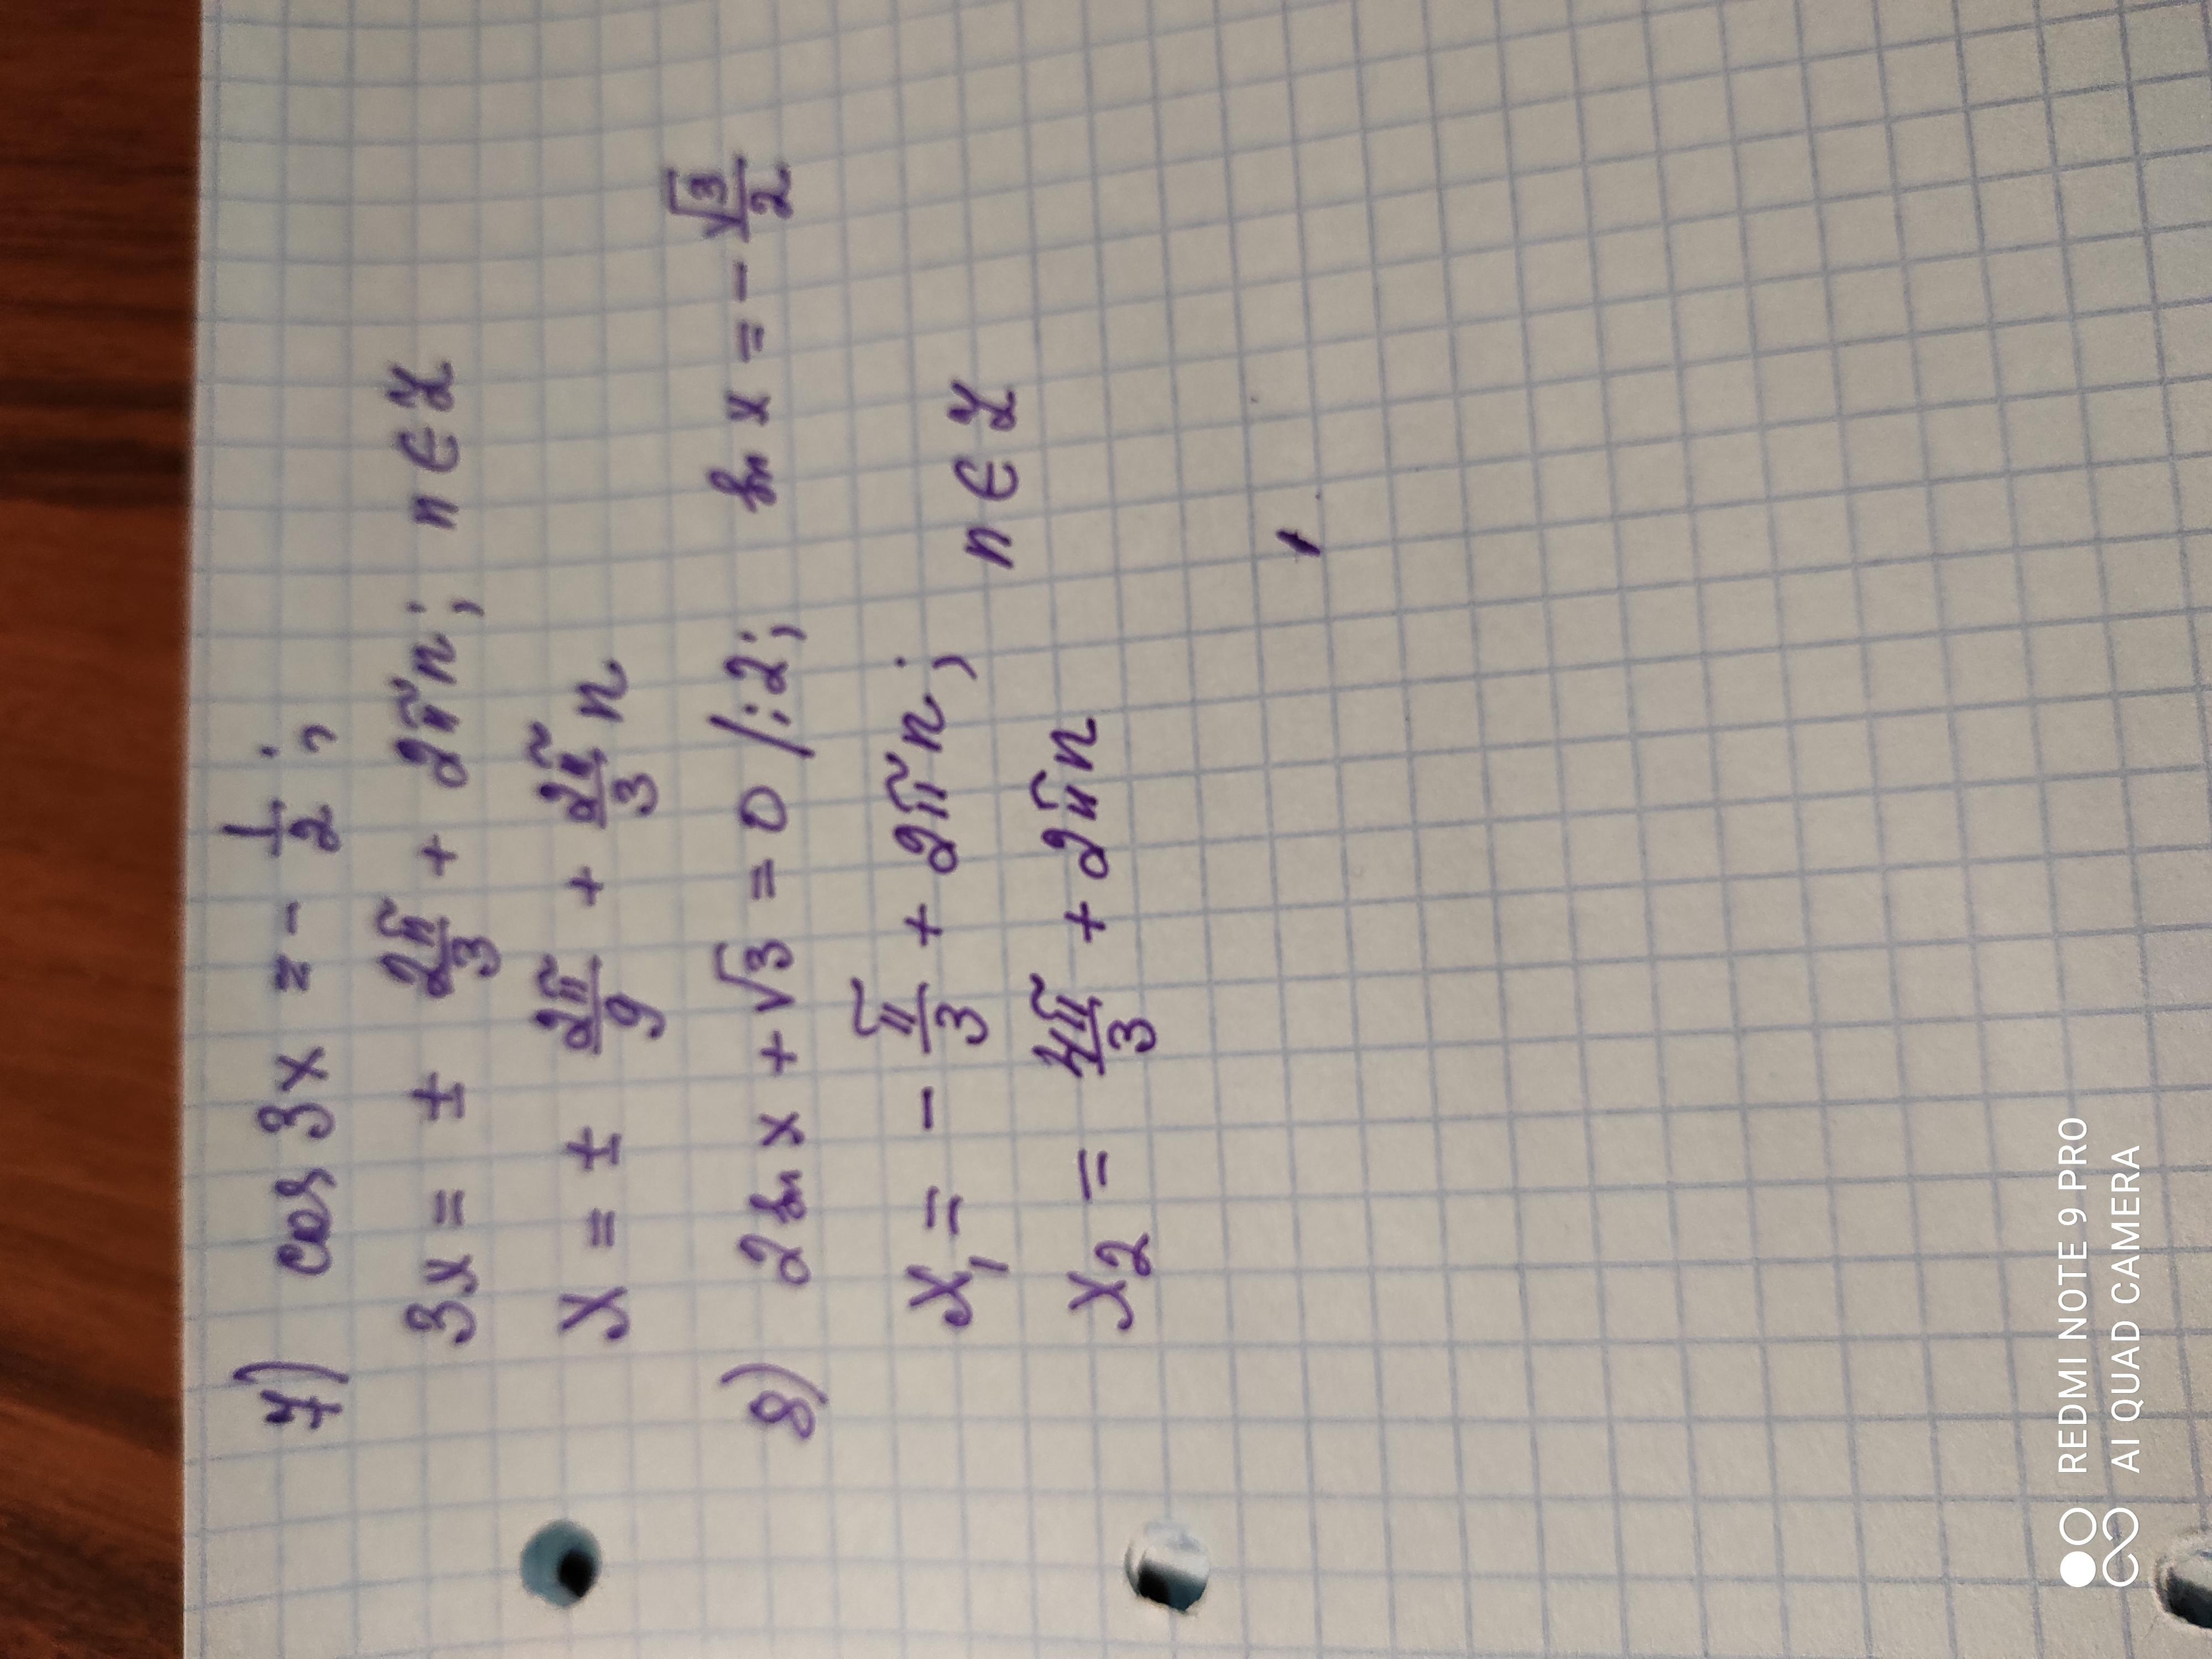 7) cos 3x = - 1/2 ;
3x = ± 2π/3 + 2πn ; n ∈ Z
x = ± 2π/9 + 2π/3 n
8) 2 sin x + √3 = 0 /:2 ; sin x = - √3/2
x₁ = - π/3 + 2πn ; n ∈ Z
x₂ = 4π/3 + 2πn
REDMI NOTE 9 PRO
AI QUAD CAMERA